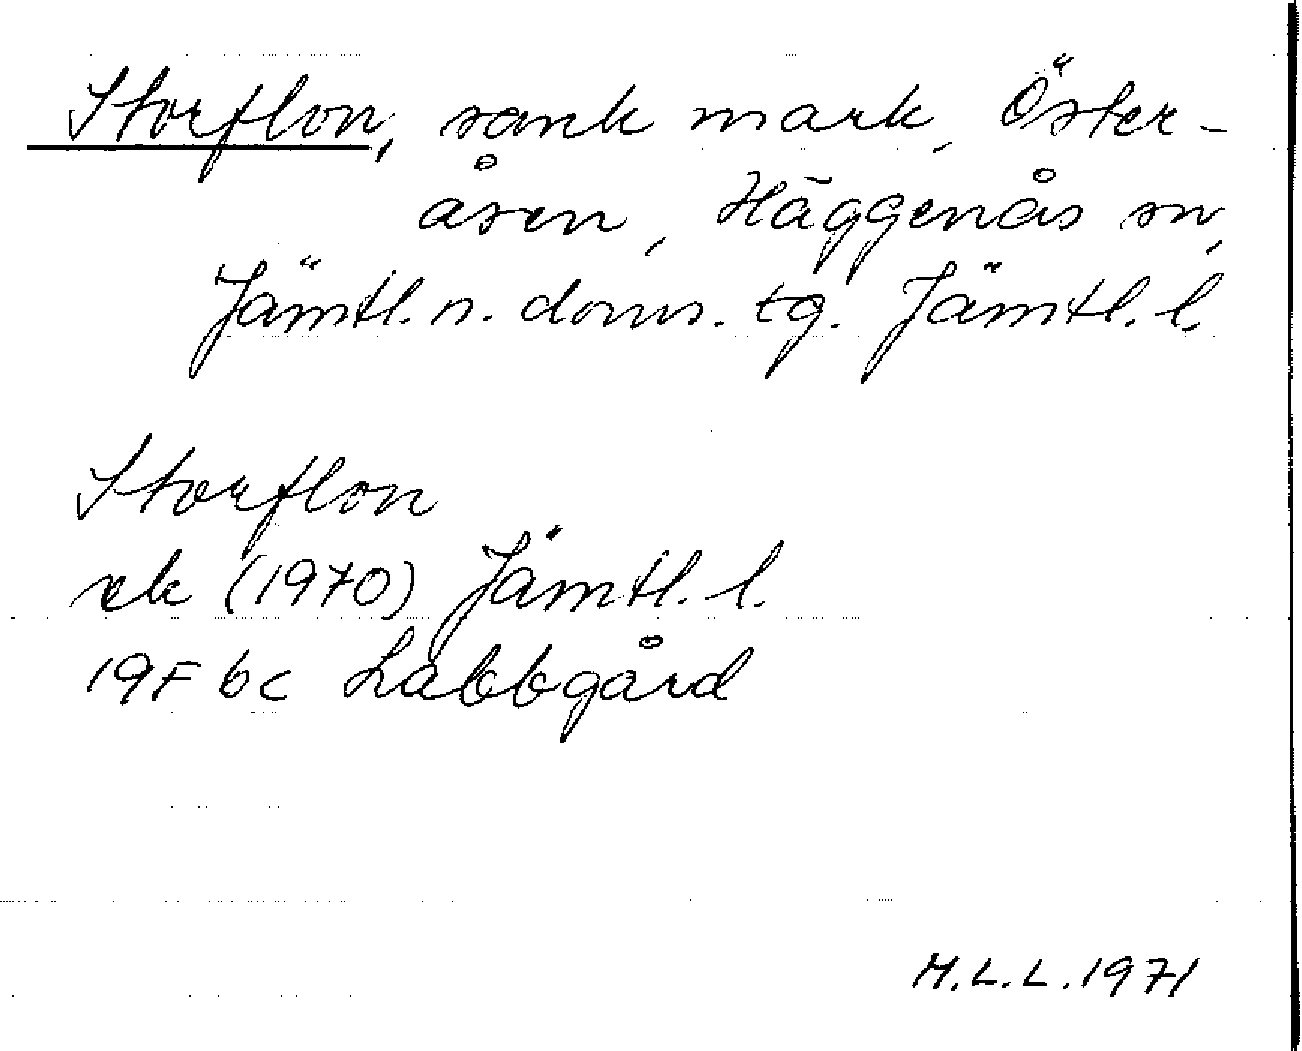 Storflon, sank mark, Öster-
åsen, Häggenås sn,
Jämtl. n. doms. tg. Jämtl. l.
Storflon
ek (1970) Jämtl. l.
19F bc Labbgård
M.L.L. 1971